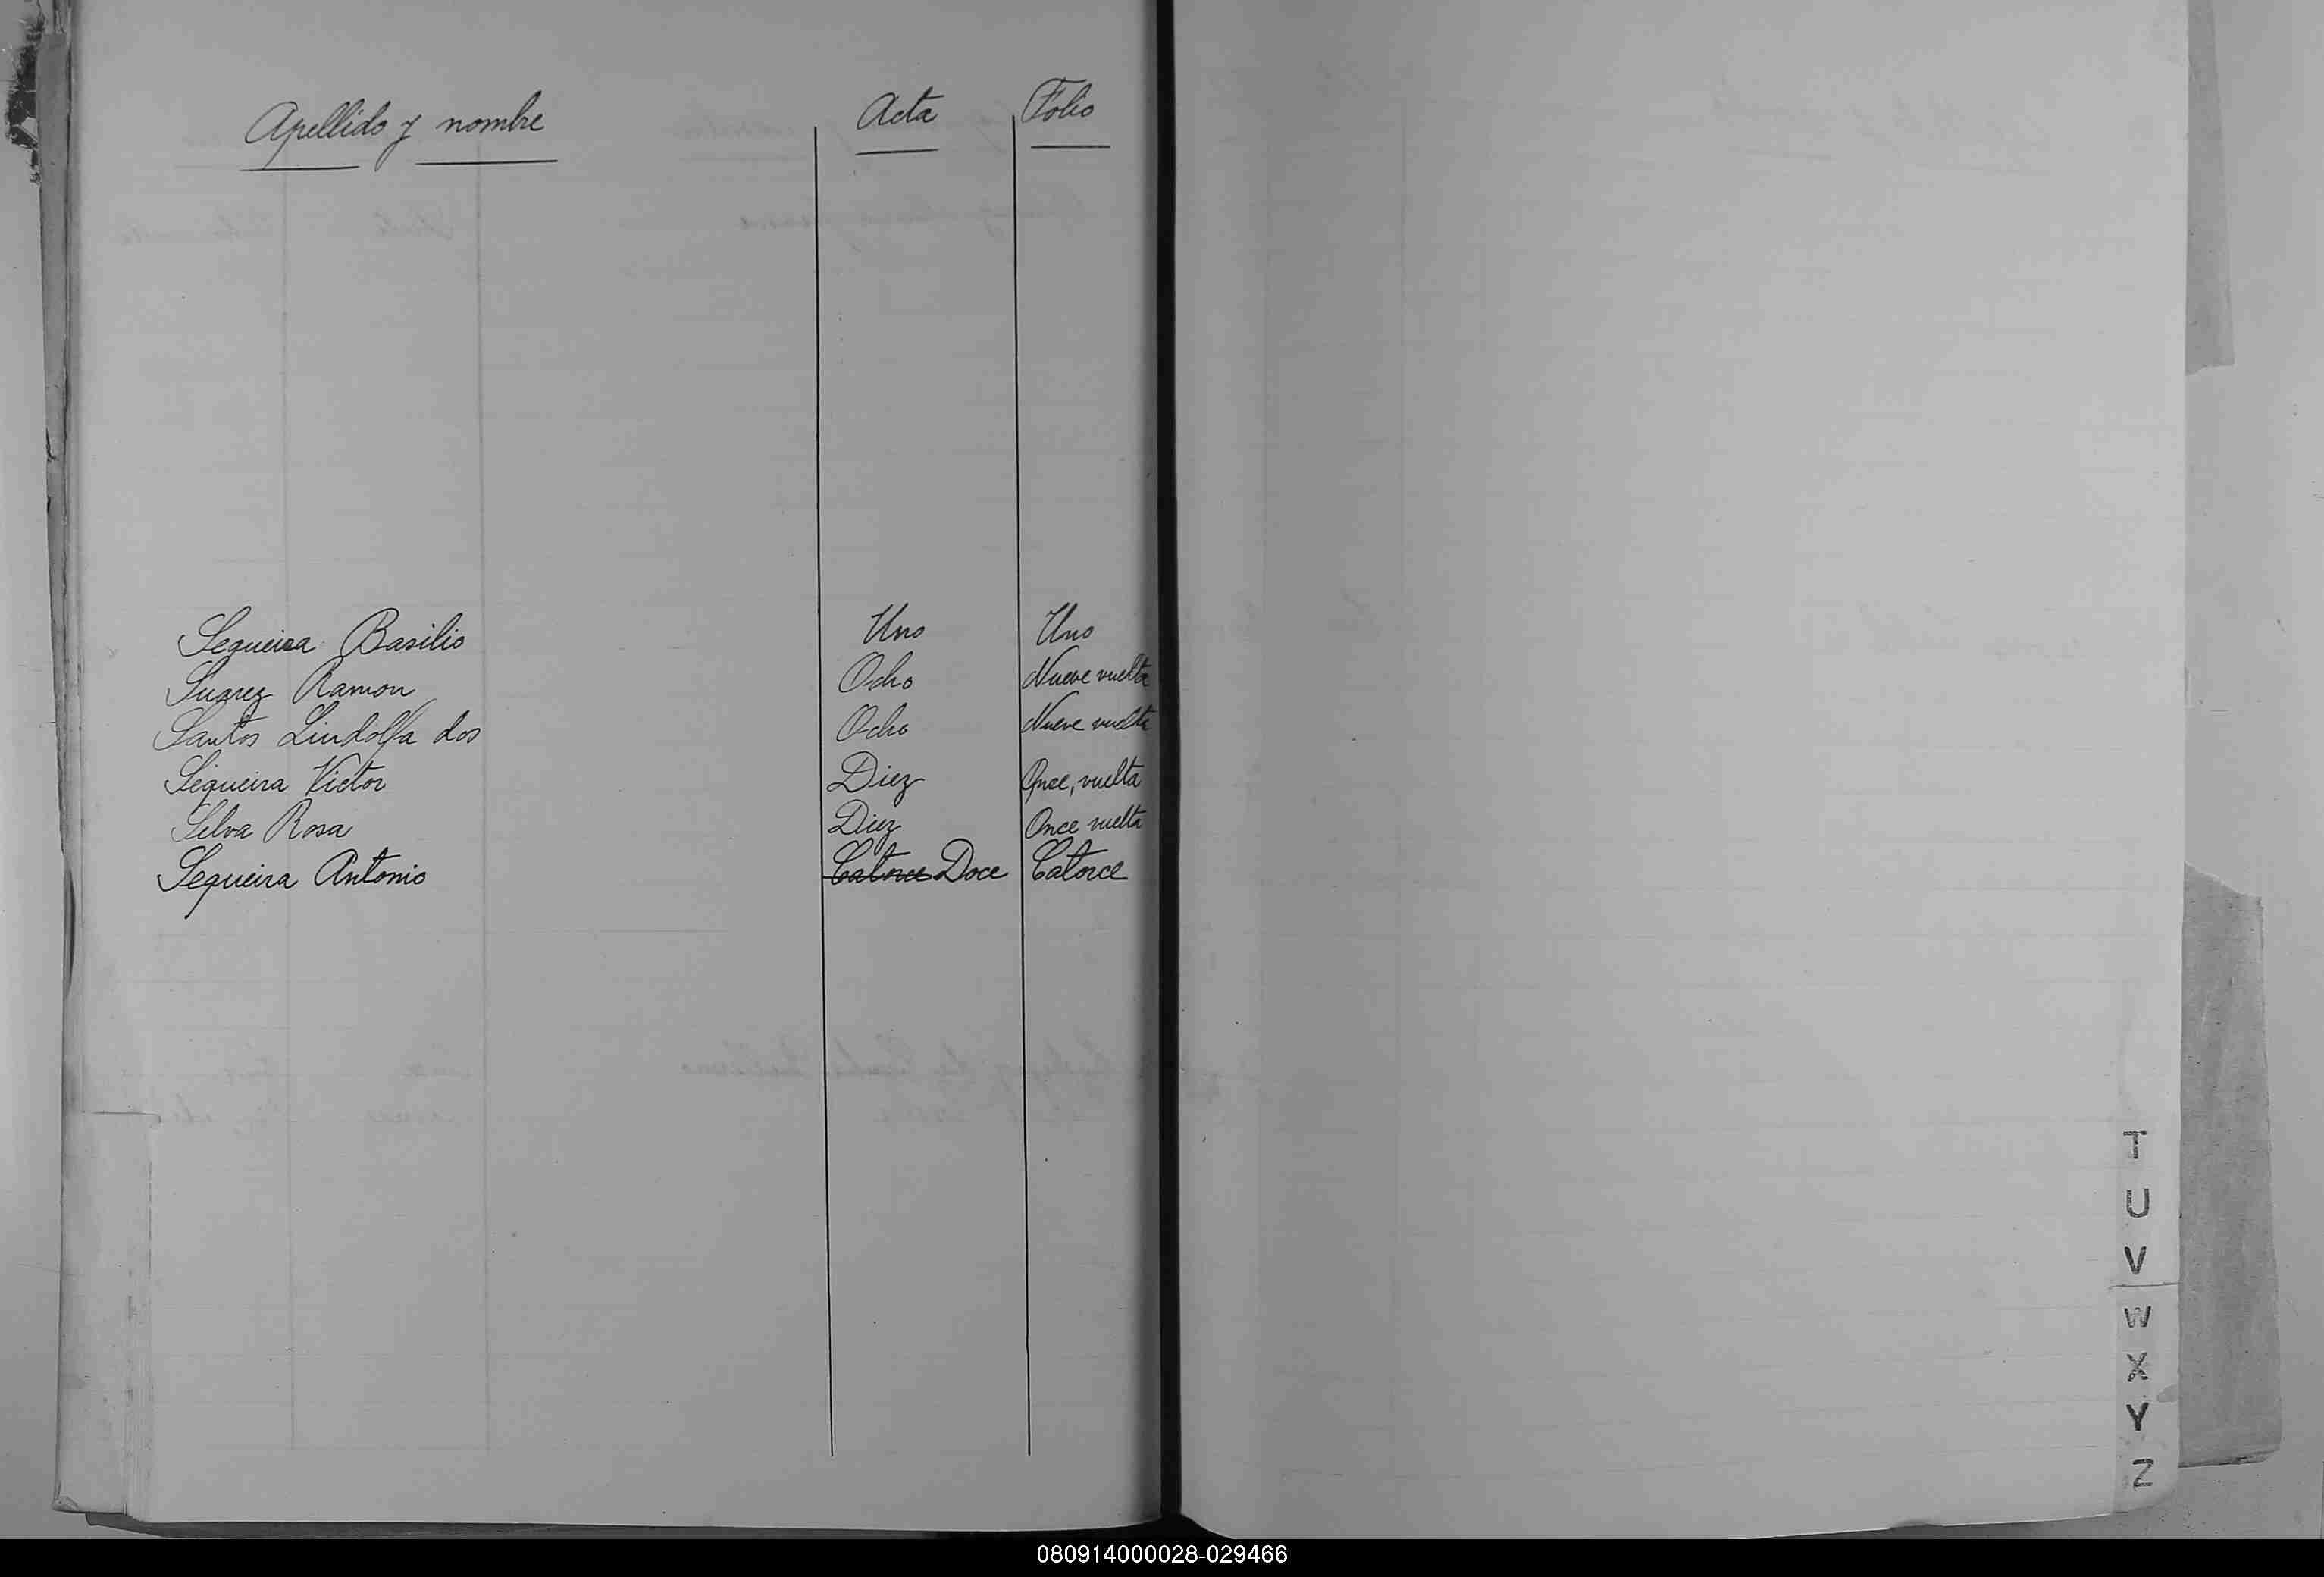 Apellido y nombre Acta Folio
Sequeira Basilio Uno Uno
Suarez Ramon Ocho Nueve vuelta
Santos Lindolfa dos Ocho Nueve vuelta
Siqueira Victor Diez Once, vuelta
Silva Rosa Diez Once vuelta
Sequeira Antonio Catorce Doce Catorce
T
U
V
W
X
Y
Z
080914000028-029466